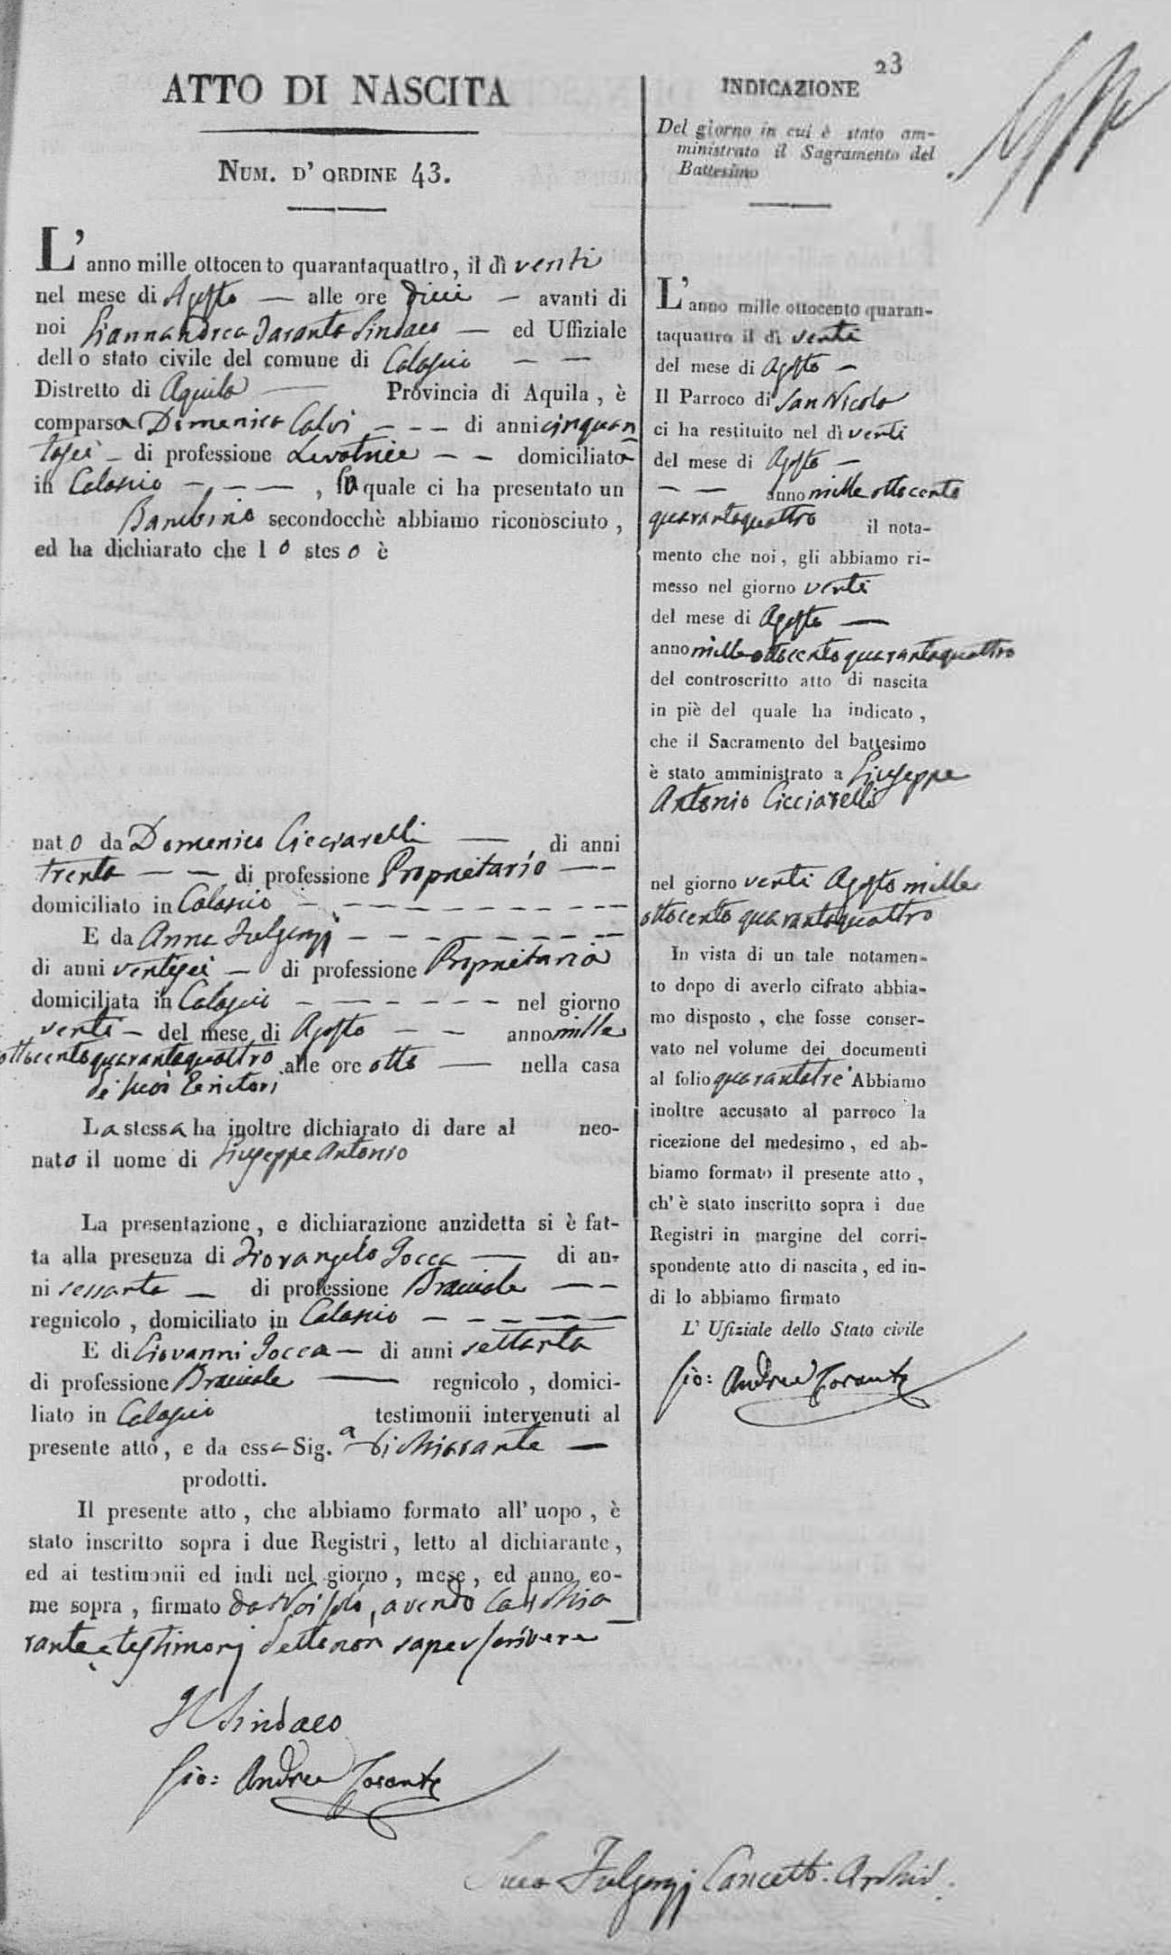 23
ATTO DI NASCITA
NUM. D' ORDINE 43.
L'anno mille ottocento quarantaquattro, il dì venti
nel mese di Agosto — alle ore dieci — avanti di
noi Giannandrea Taranta Sindaco — ed Uffiziale
dello stato civile del comune di Calascio — —
Distretto di Aquila — Provincia di Aquila, è
comparsa Domenica Calvi — — — di anni cinquan
tasei — di professione Levatrice — — domiciliata
in Calascio — — —, la quale ci ha presentato un
Bambino secondocchè abbiamo riconosciuto,
ed ha dichiarato che lo stesso è
nato da Domenico Cicciarelli — , di anni
trenta — — di professione Proprietario — —
domiciliato in Calascio — — — — — — — — —
E da Anna Fulgenzj — — — — — — — —
di anni ventisei — di professione Proprietaria
domiciliata in Calascio — — — — — — nel giorno
venti — del mese di Agosto — — anno mille
ottocentoquarantaquattro alle ore otto — nella casa
di suoi Genitori
La stessa ha inoltre dichiarato di dare al neo-
nato il nome di Giuseppe Antonio
La presentazione, e dichiarazione anzidetta si è fat-
ta alla presenza di Fiorangelo Jocca — di an-
ni sessanta — di professione Bracciale — —
regnicolo, domiciliato in Calascio — — — — —
E di Giovanni Jocca — di anni settanta
di professione Bracciale — regnicolo, domici-
liato in Calascio testimonii intervenuti al
presente atto, e da essa Sig.a dichiarante —
prodotti.
Il presente atto, che abbiamo formato all' uopo, è
stato inscritto sopra i due Registri, letto al dichiarante,
ed ai testimonii ed indi nel giorno, mese, ed anno co-
me sopra, firmato da Noi solo, avendo la dichia
rante e testimonj detto non saper scrivere
Il Sindaco
Gio: Andrea Taranta
INDICAZIONE
Del giorno in cui è stato am-
ministrato il Sagramento del
Battesimo
L'anno mille ottocento quaran-
taquattro il dì venti
del mese di Agosto —
Il Parroco di San Nicola
ci ha restituito nel dì venti
del mese di Agosto —
— — anno mille ottocento
quarantaquattro il nota-
mento che noi, gli abbiamo ri-
messo nel giorno venti
del mese di Agosto —
anno mille ottocento quarantaquattro
del controscritto atto di nascita
in piè del quale ha indicato,
che il Sacramento del battesimo
è stato amministrato a Giuseppe
Antonio Cicciarelli
nel giorno venti Agosto mille
ottocento quarantaquattro
In vista di un tale notamen-
to dopo di averlo cifrato abbia-
mo disposto, che fosse conser-
vato nel volume dei documenti
al folio quarantatre Abbiamo
inoltre accusato al parroco la
ricezione del medesimo, ed ab-
biamo formato il presente atto,
ch' è stato inscritto sopra i due
Registri in margine del corri-
spondente atto di nascita, ed in-
di lo abbiamo firmato
L' Ufiziale dello Stato civile
Gio: Andrea Taranta
Fulgenzj Cancell. Archiv.